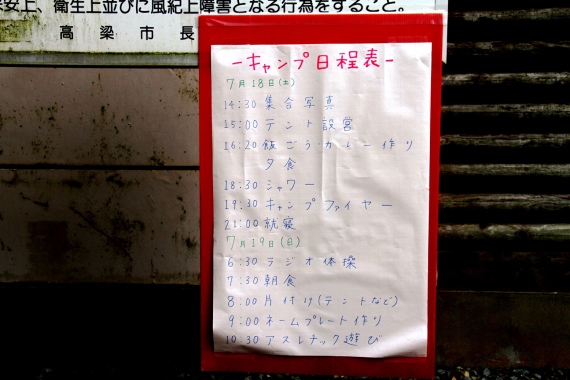 安上、衛生上並びに風紀上障害となる行為をすること。
高梁市長
－キャンプ日程表－
7月18日(土)
14:30 集合写真
15:00 テント設営
16:20 飯ごう・カレー作り
夕食
18:30 シャワー
19:30 キャンプファイヤー
21:00 就寝
7月19日(日)
6:30 ラジオ体操
7:30 朝食
8:00 片付け(テントなど)
9:00 ネームプレート作り
10:30 アスレチック遊び